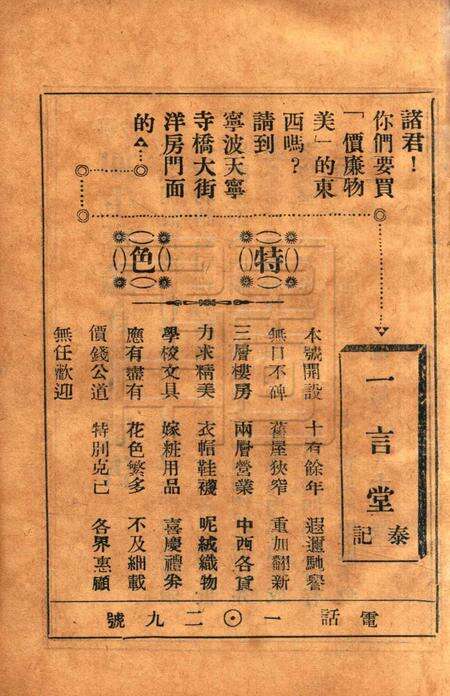 諸君！
你們要買
「價廉物
美」的東
西嗎？
請到
寧波天寧
寺橋大街
洋房門面
的
一言堂
泰記
特色
本號開設　十有餘年　遐邇馳譽
無口不碑　舊屋狹窄　重加翻新
三層樓房　兩層營業　中西各貨
力求精美　衣帽鞋襪　呢絨織物
學校文具　嫁粧用品　喜慶禮券
應有盡有　花色繁多　不及細載
價錢公道　特別克己　各界惠顧
無任歡迎
電話一〇二九號